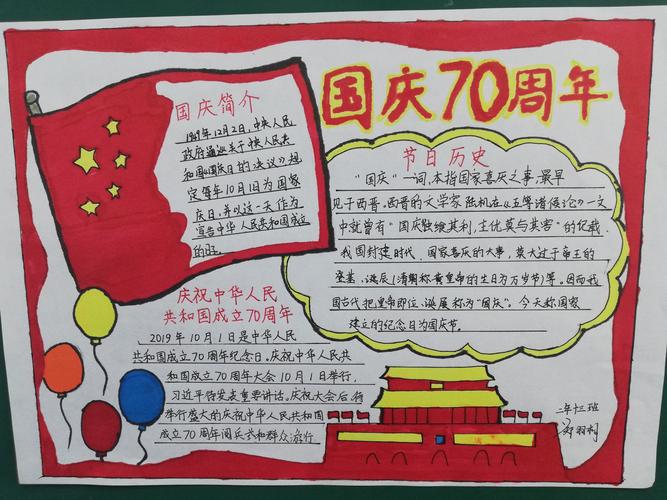 国庆70周年
国庆简介
1949年12月2日，中央人民
政府通过关于中央人民共
和国《国庆日的决议》规
定每年10月1日为国家
庆日，并以这一天作为
宣告中华人民共和国成立
的日
节日历史
"国庆"一词，本指国家喜庆之事，最早
见于西晋，西晋的文学家陆机在《五等诸侯论》一文
中就曾有"国庆独飨其利，主优莫与其害"的纪载，
我国封建时代，国家喜庆的大事，莫大过于帝王的
登基，诞辰(清朝称黄皇帝的生日为万岁节)等。因而我
国古代把皇帝即位、诞辰称为"国庆"。今天称国家
建立的纪念日为国庆节。
庆祝中华人民
共和国成立70周年
2019年10月1日是中华人民
共和国成立70周年纪念日。庆祝中华人民共
和国成立70周年大会10月1日举行，
习近平将发表重要讲话。庆祝大会后将
举行盛大的庆祝中华人民共和国
成立70周年阅兵式和群众游行
二年十三班
羽